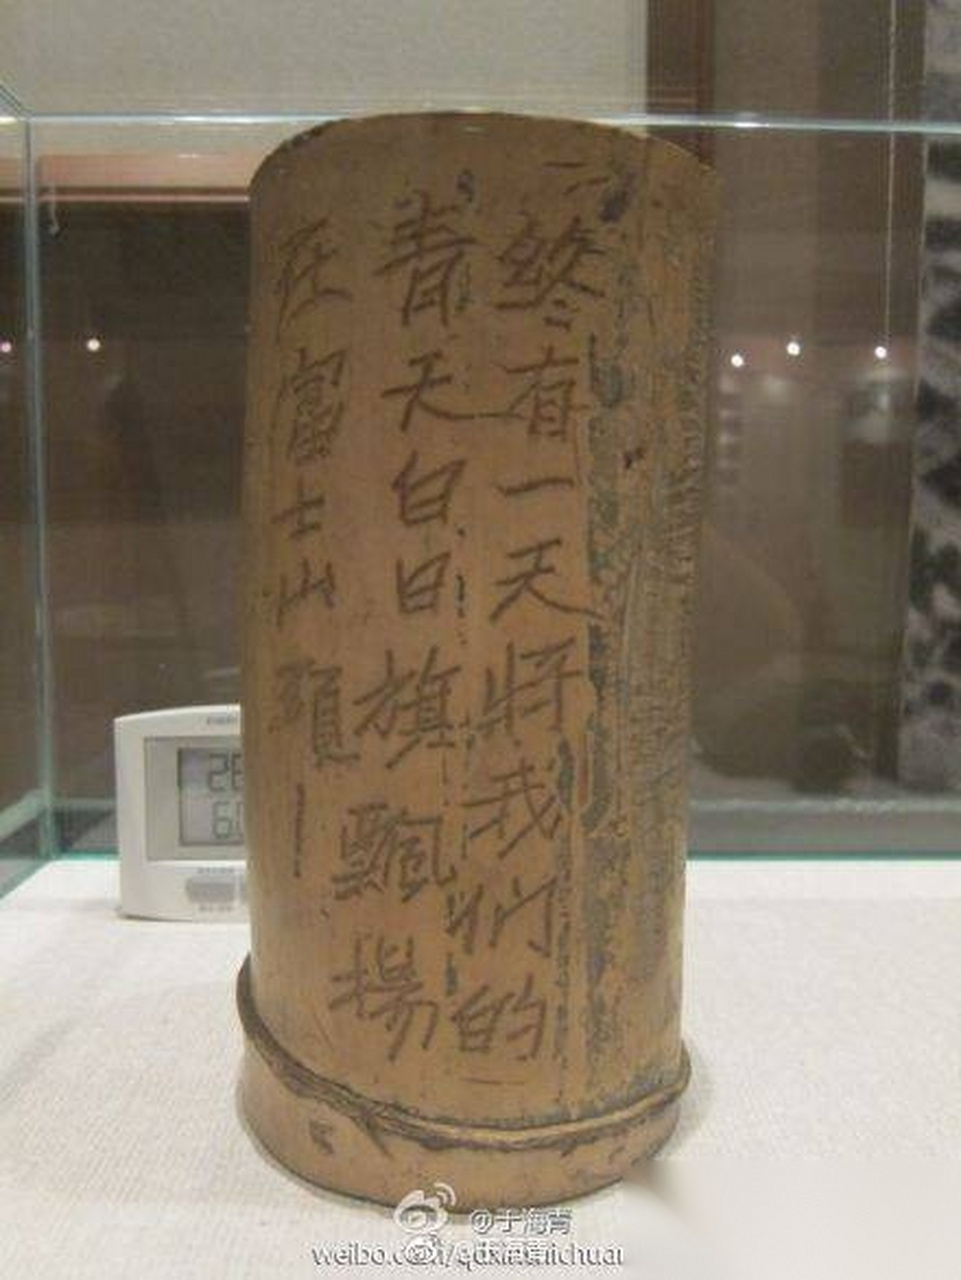 終有一天將我們的
青天白日旗飄揚
在富士山頭！
26
60
@于海青